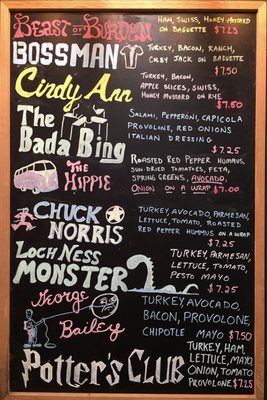 Beast of Burden
Ham, Swiss, Honey-Mustard
on Baguette $7.25
Bossman
Turkey, Bacon, Ranch,
Colby Jack on Baguette
$7.50
Cindy Ann
Turkey, Bacon,
Apple Slices, Swiss,
Honey Mustard on Rye
$7.50
The
Bada Bing
Salami, Pepperoni, Capicola
Provolone, Red Onions
Italian Dressing
$7.25
The
Hippie
Roasted Red Pepper Hummus,
Sun-Dried Tomatoes, Feta,
Spring Greens, Avocado,
Onion on a Wrap $7.00
Chuck
Norris
Turkey, Avocado, Parmesan,
Lettuce, Tomato, Roasted
Red Pepper Hummus on a wrap
$7.25
Loch Ness
Monster
Turkey, Parmesan,
Lettuce, Tomato,
Pesto Mayo
$7.25
George
Bailey
Turkey, Avocado,
Bacon, Provolone,
Chipotle Mayo $7.50
Potter's Club
Turkey, Ham,
Lettuce, Mayo,
Onion, Tomato
Provolone $7.25